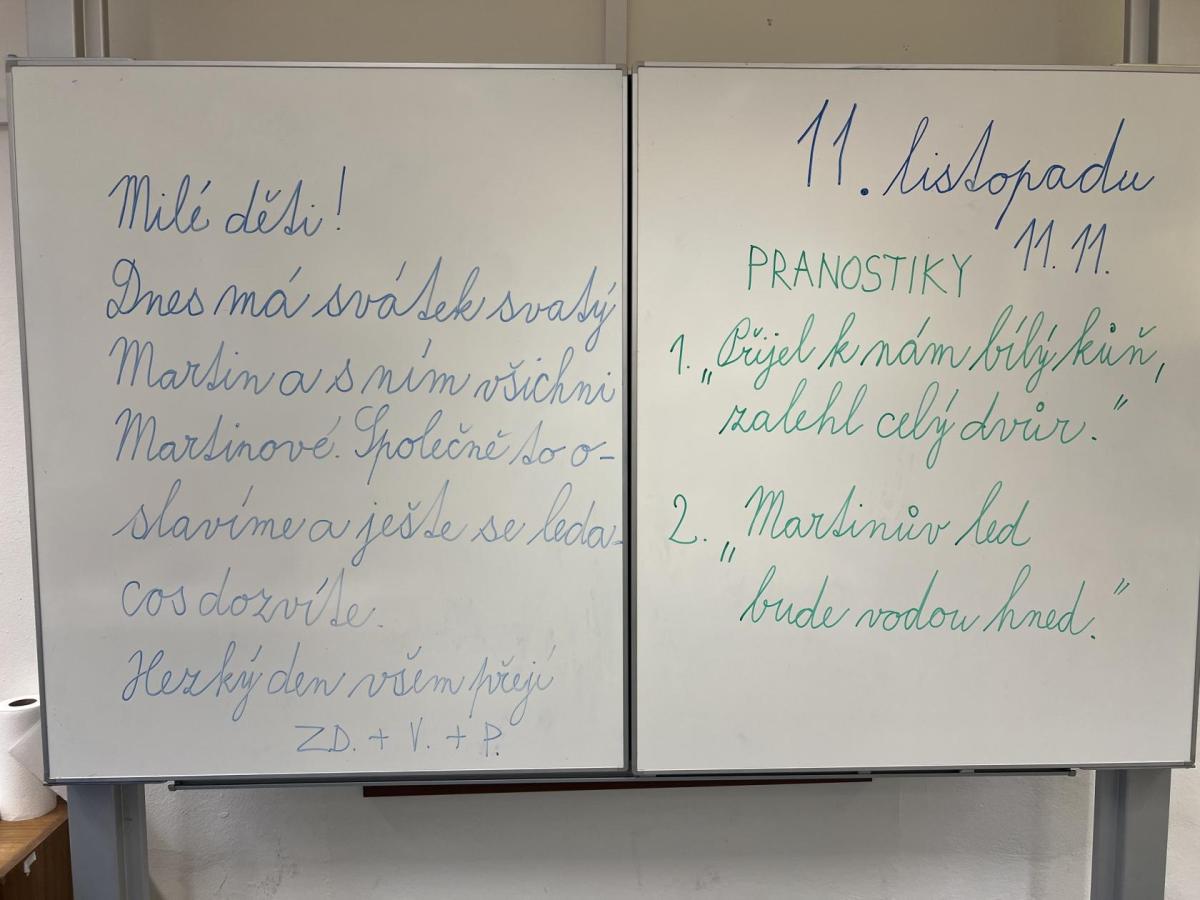 Milé děti!
Dnes má svátek svatý
Martin a s ním všichni
Martinové. Společně to o-
slavíme a ješte se leda-
cos dozvíte.
Hezký den všem přejí
ZD. + V. + P.
11. listopadu
11. 11.
PRANOSTIKY
1. „Přijel k nám bílý kůň,
zalehl celý dvůr.“
2. „Martinův led
bude vodou hned.“